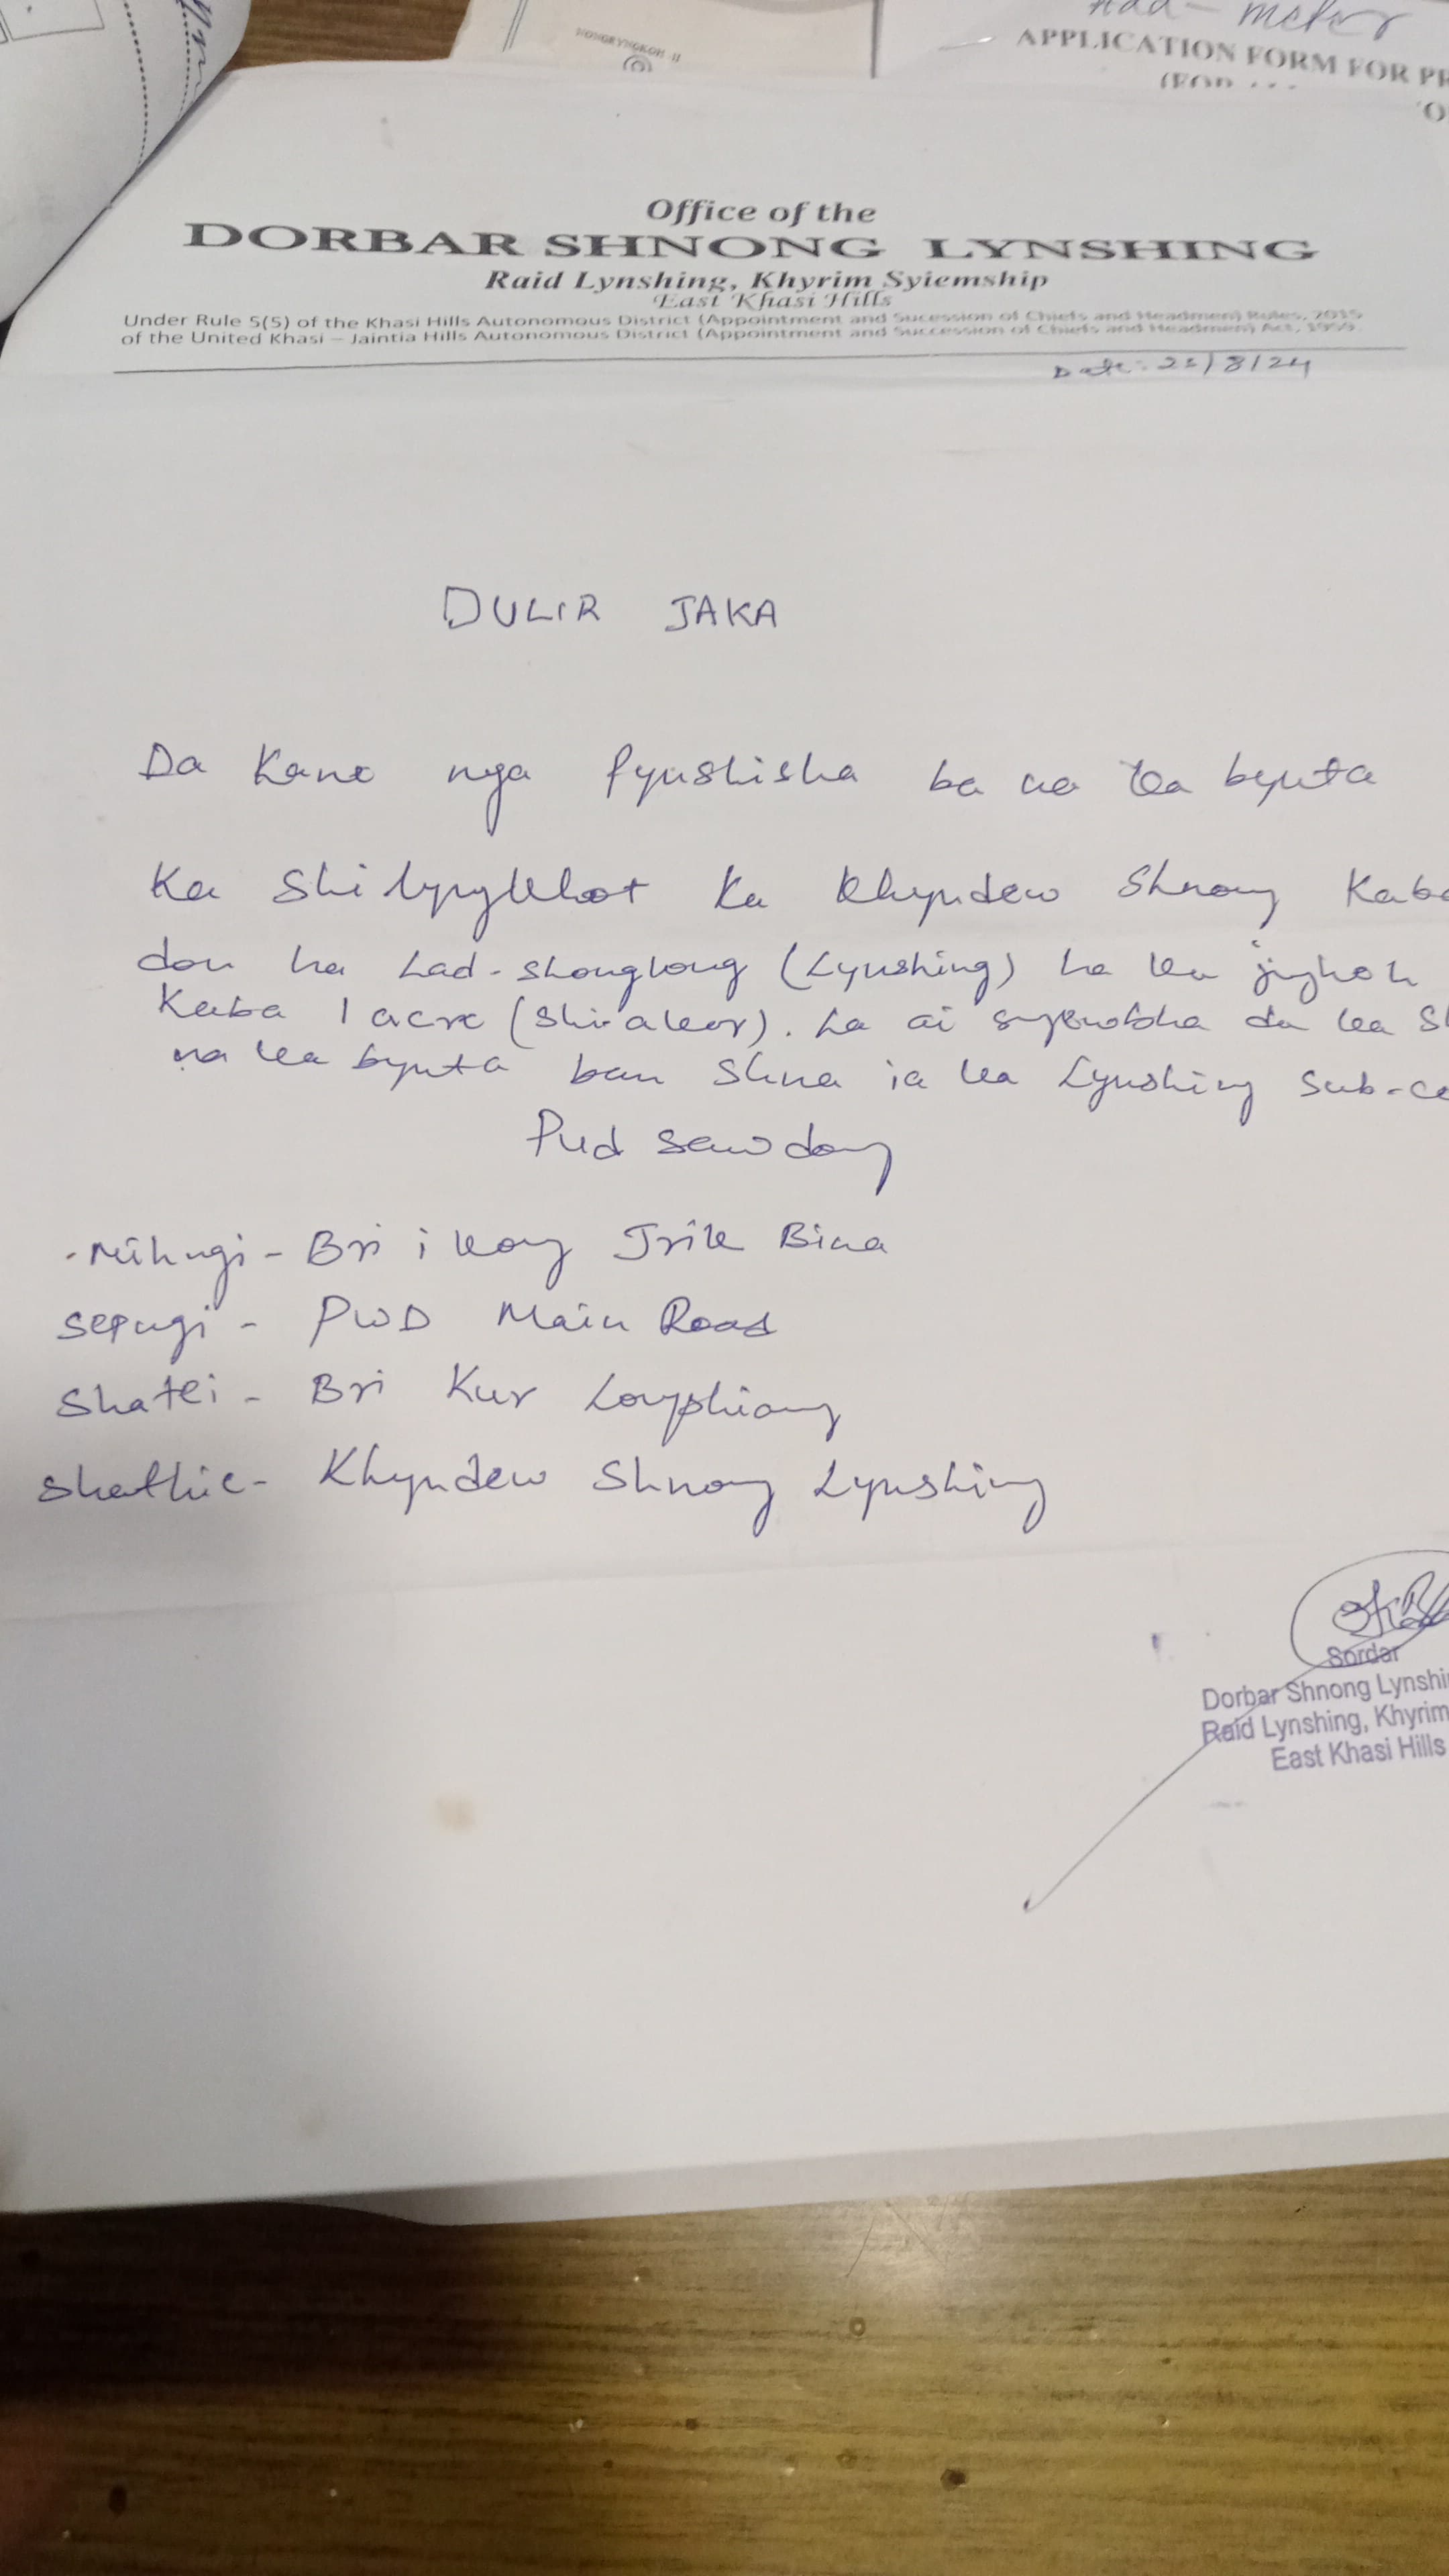 Had - meter
APPLICATION FORM FOR PR
NONGKYNGKOH -II
Office of the
DORBAR SHNONG LYNSHING
Raid Lynshing, Khyrim Syiemship
East Khasi Hills
Under Rule 5(5) of the Khasi Hills Autonomous District (Appointment and Sucession of Chiefs and Headmen) Rules, 2015
of the United Khasi – Jaintia Hills Autonomous District (Appointment and Succession of Chiefs and Headmen) Act, 1959.
Date: 21/8/24
DULIR JAKA
Da Kane nga pynshisha ba na ka bynta
Ka Shi lyngkhot ka Khyndew Shnong Kaba
don ha Lad-shonglong (Lynshing) ha ka jingheh
Kaba 1 acre (Shi-aker). La ai da ka Sh
na ka bynta ban Shna ia ka Lynshing Sub-ce
Pud sawdong
Mihngi - Bri i kong Trik Bina
Sepngi - PWD Main Road
Shatei - Bri Kur Longphiang
Shathie - Khyndew Shnong Lynshing
Sordar
Dorbar Shnong Lynshi
Raid Lynshing, Khyrim
East Khasi Hills